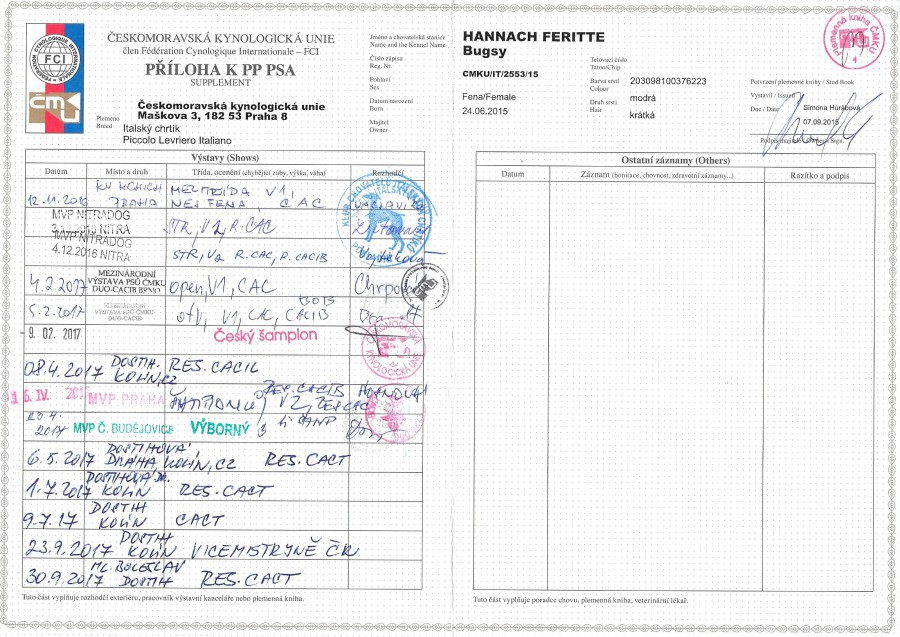 ČESKOMORAVSKÁ KYNOLOGICKÁ UNIE
člen Fédération Cynologique Internationale – FCI
PŘÍLOHA K PP PSA
SUPPLEMENT
FCI
ČMKU
Českomoravská kynologická unie
Maškova 3, 182 53 Praha 8
Plemeno
Breed
Italský chrtík
Piccolo Levriero Italiano
Jméno a chovatelská stanice
Name and the Kennel Name
Číslo zápisu
Reg. Nr.
Pohlaví
Sex
Datum narození
Born
Majitel
Owner
Výstavy (Shows)
Datum
Místo a druh
Třída, ocenění (chybějící zuby, výška, váha)
Rozhodčí
12.11.2016 KV KCHICH PRAHA MEZITŘÍDA V1, NEJ FENA, CAC
MVP NITRADOG
3.12.2016 NITRA V2, R.CAC
MVP NITRADOG
4.12.2016 NITRA STR, V2 R.CAC, R.CACIB
4.2.2017 MEZINÁRODNÍ VÝSTAVA PSŮ ČMKU DUO-CACIB BRNO open, V1, CAC
5.2.2017 MEZINÁRODNÍ VÝSTAVA PSŮ ČMKU DUO-CACIB otv, V1, CAC, CACIB BOB
- 9. 02. 2017 Český šampion
08.4.2017 DOSTIH. KOLÍN,CZ RES.CACIL
16. IV. 2017 MVP PRAHA V2, RES.CAC RES.CACIB
2017 MVP Č. BUDĚJOVICE VÝBORNÝ 3
6.5.2017 DOSTIHOVÁ DRÁHA, KOLÍN, CZ RES.CACT
1.7.2017 DOSTIHOVÁ DR. KOLÍN RES.CACT
9.7.17 DOSTIH KOLÍN CACT
23.9.2017 DOSTIH KOLÍN VICEMISTRYNĚ ČR
30.9.2017 ML. BOLESLAV DOSTIH RES.CACT
Tuto část vyplňuje rozhodčí exteriéru, pracovník výstavní kanceláře nebo plemenná kniha.
HANNACH FERITTE
Bugsy
CMKU/IT/2553/15
Fena/Female
24.06.2015
Tetovací číslo
Tatoo/Chip
203098100376223
Barva srsti
Colour
modrá
Druh srsti
Hair
krátká
plemenná kniha ČMKU
1
Potvrzení plemenné knihy / Stud Book
Vystavil / Issued
Simona Hurábová
Dne / Date
07.09.2015
Ostatní záznamy (Others)
Datum
Záznam (bonitace, chovnost, zdravotní záznamy...)
Razítko a podpis
Tuto část vyplňuje poradce chovu, plemenná kniha, veterinární lékař.